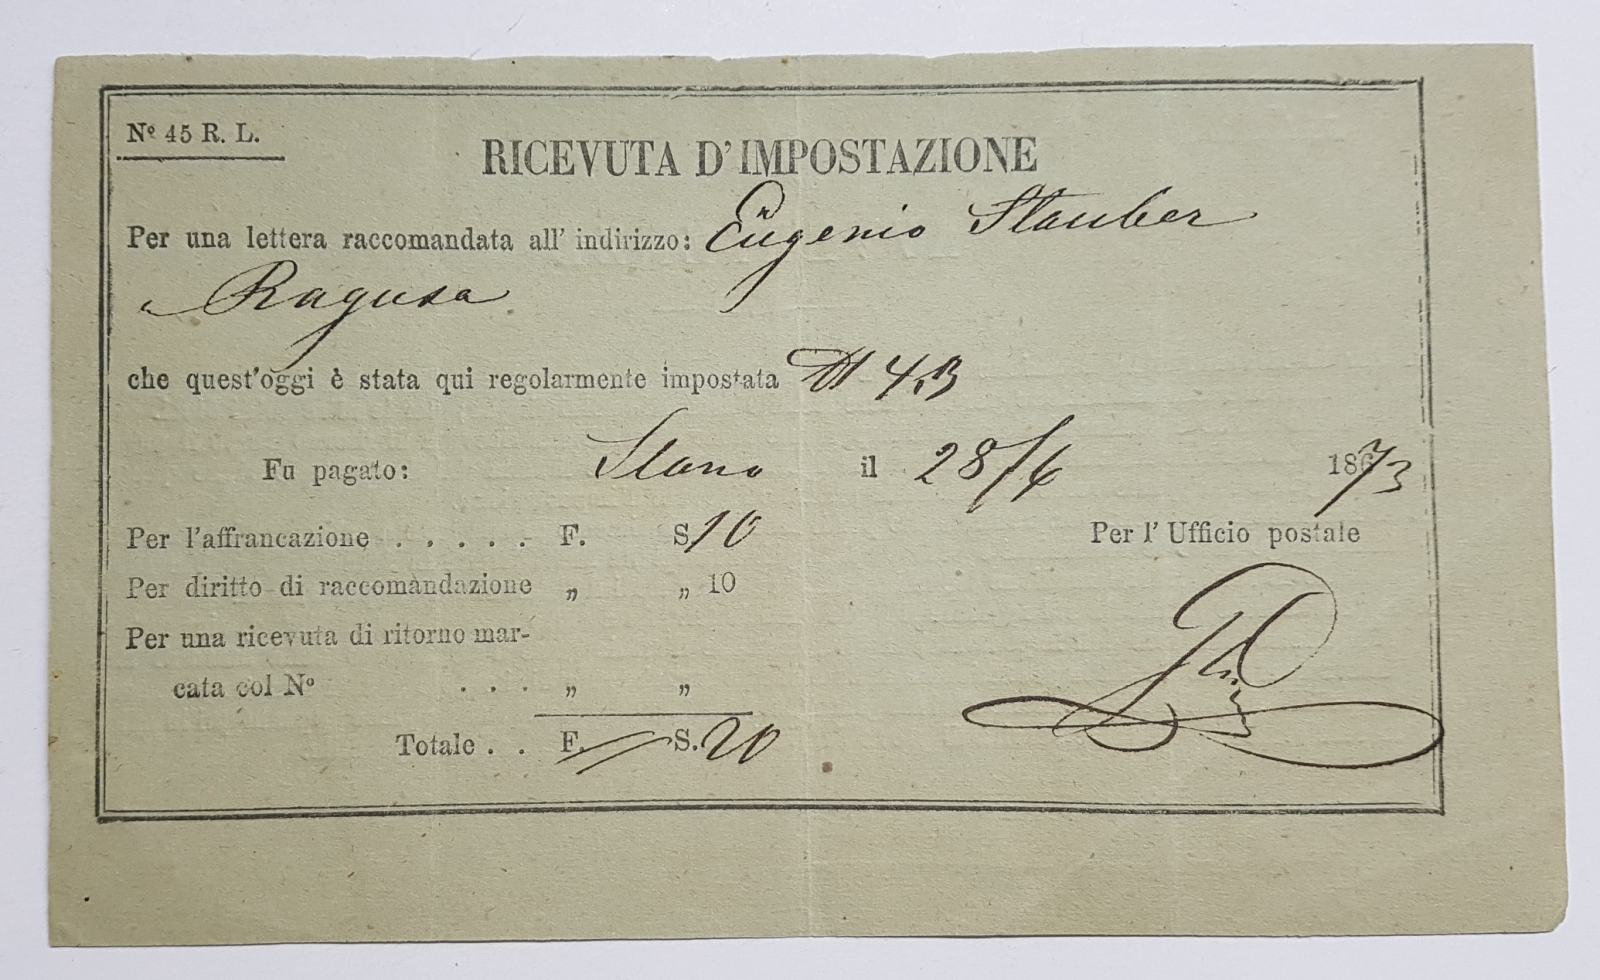 Nº 45 R. L.
RICEVUTA D'IMPOSTAZIONE
Per una lettera raccomandata all' indirizzo: Eugenio Stauber
a Ragusa
che quest'oggi è stata qui regolarmente impostata 43
Fu pagato: Slano il 28/6 1873
Per l'affrancazione . . . . . F. S. 10
Per l' Ufficio postale
Per diritto di raccomandazione „ „ 10
Per una ricevuta di ritorno mar-
cata col Nº . . . „ „
Totale . . F. — S. 20